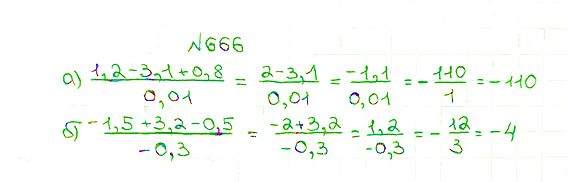 №666
а) (1,2-3,1+0,8)/0,01 = (2-3,1)/0,01 = (-1,1)/0,01 = -110/1 = -110
б) (-1,5+3,2-0,5)/(-0,3) = (-2+3,2)/(-0,3) = 1,2/(-0,3) = -12/3 = -4